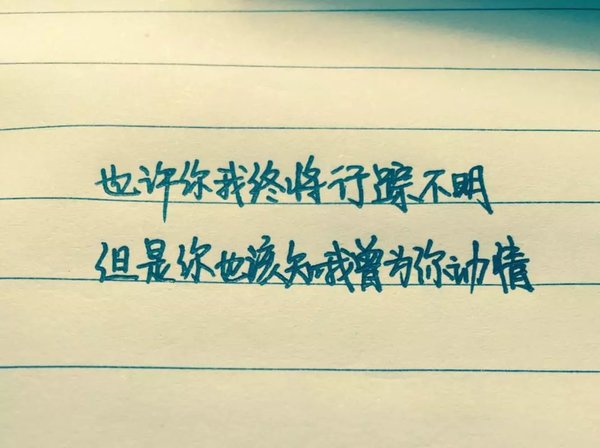 也许你我终将行踪不明
但是你也该知我曾为你动情